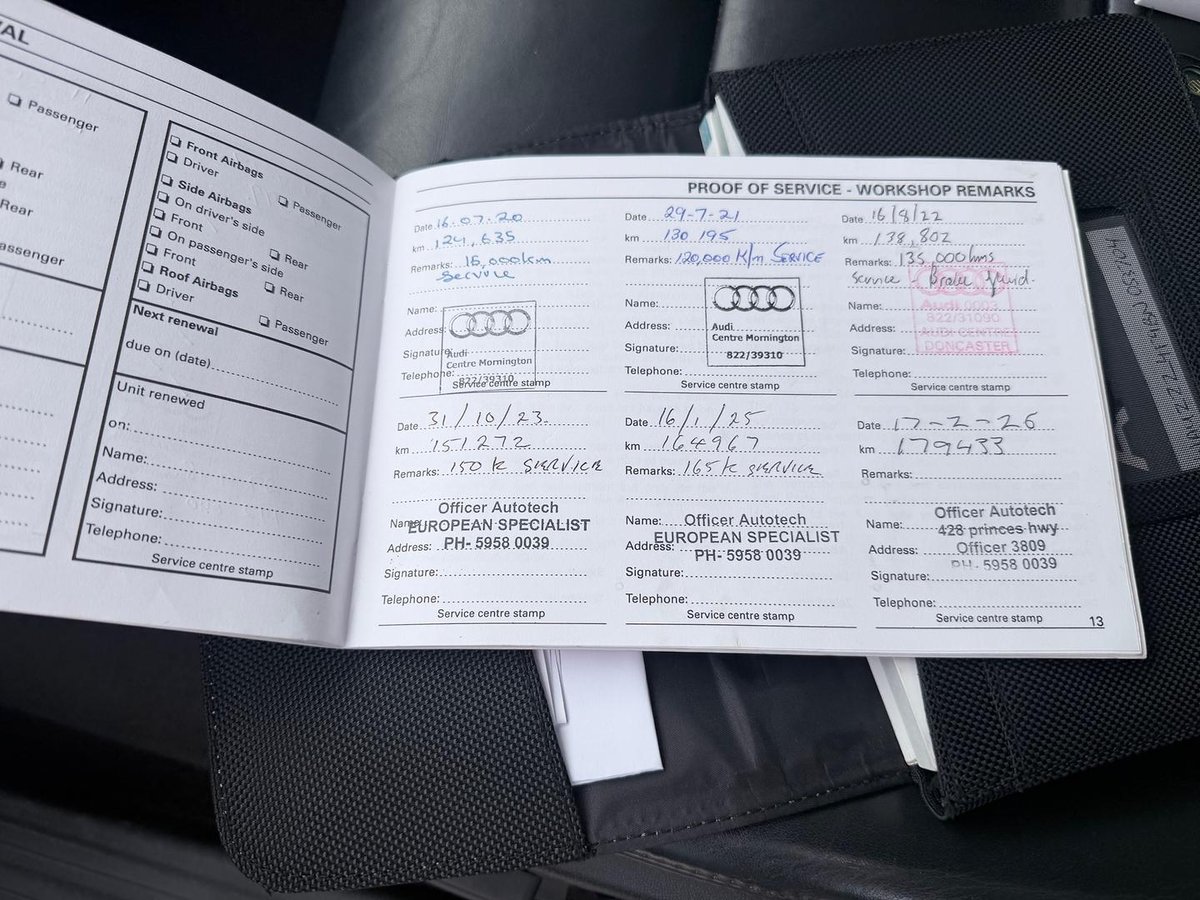 AL
Passenger
Rear
Rear
assenger
Front Airbags
Driver
Passenger
Side Airbags
On driver's side
Front
Rear
On passenger's side
Front
Rear
Roof Airbags
Driver
Passenger
Next renewal
due on (date)
Unit renewed
on:
Name:
Address:
Signature:
Telephone:
Service centre stamp
PROOF OF SERVICE - WORKSHOP REMARKS
Date 16.07.20
km 124,635
Remarks: 15,000km
Service
Name:
Address:
Signature:
Audi
Centre Mornington
Telephone:
822/39310
Service centre stamp
Date 29-7-21
km 130 195
Remarks: 120,000 K/m SERVICE
Name:
Address:
Audi
Centre Mornington
Signature:
822/39310
Telephone:
Service centre stamp
Date 16/8/22
km 138,802
Remarks: 135,000 kms
Service Brake fluid.
Name:
Audi 0003
822/31090
Address:
AUDI CENTRE
DONCASTER
Signature:
Telephone:
Service centre stamp
Date 31/10/23.
km 151272
Remarks: 150 K SERVICE
Officer Autotech
Name:
EUROPEAN SPECIALIST
Address:
PH- 5958 0039
Signature:
Telephone:
Service centre stamp
Date 16/1/25
km 164967
Remarks: 165K SERVICE
Name:
Officer Autotech
EUROPEAN SPECIALIST
Address:
PH- 5958 0039
Signature:
Telephone:
Service centre stamp
Date 17-2-26
km 179433
Remarks:
Officer Autotech
Name:
428 princes hwy
Address:
Officer 3809
PH- 5958 0039
Signature:
Telephone:
Service centre stamp
13